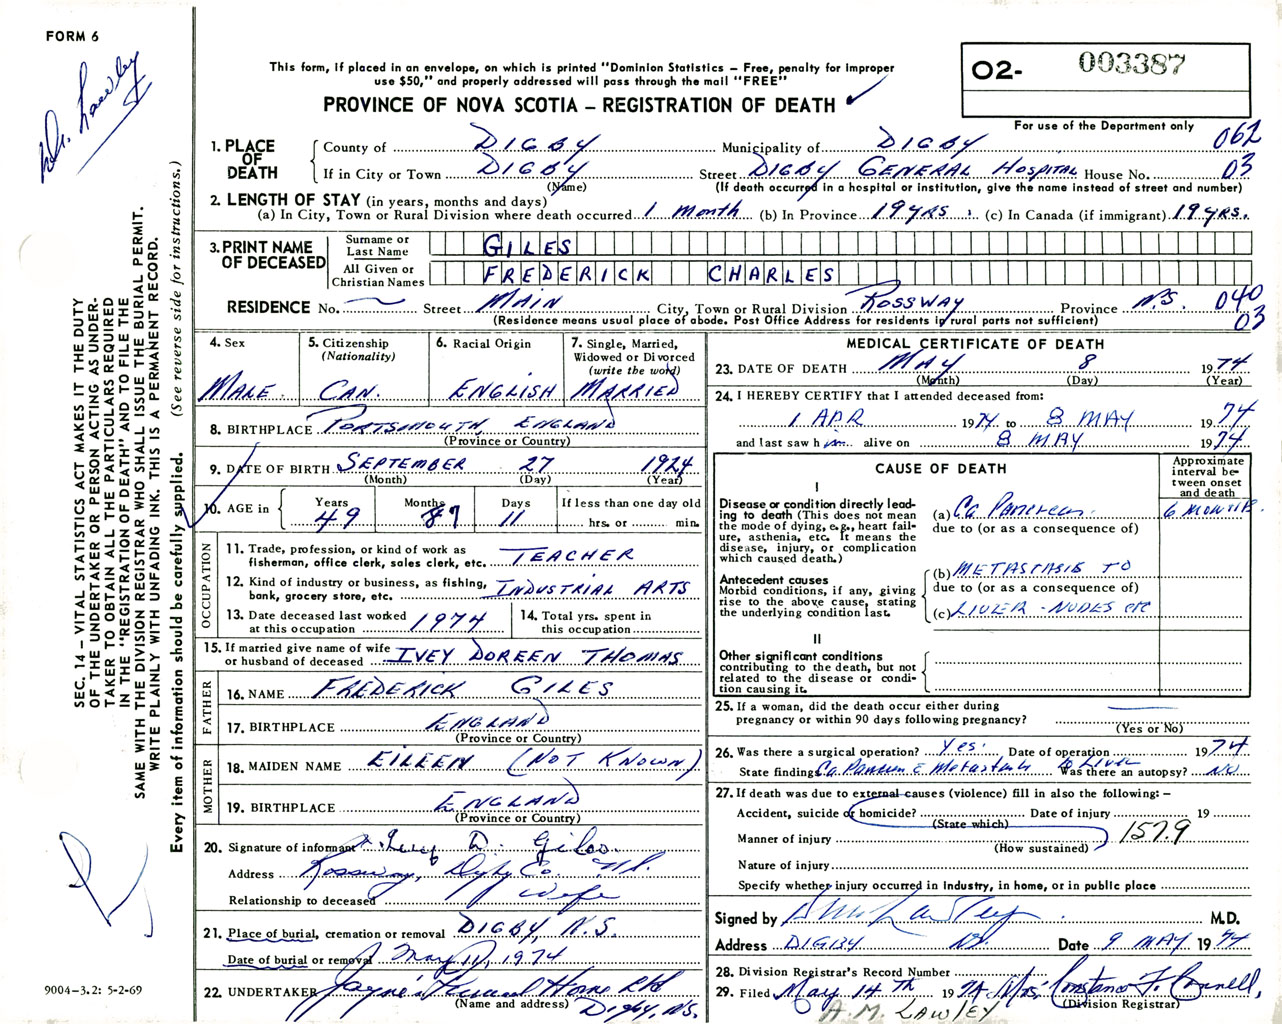 FORM 6
Dr. Lawley
This form, if placed in an envelope, on which is printed "Dominion Statistics – Free, penalty for improper
use $50," and properly addressed will pass through the mail "FREE"
PROVINCE OF NOVA SCOTIA – REGISTRATION OF DEATH ✓
02- 003387
For use of the Department only
1. PLACE OF DEATH
County of DIGBY Municipality of DIGBY 062
If in City or Town DIGBY Street DIGBY GENERAL HOSPITAL House No. 03
(Name) (If death occurred in a hospital or institution, give the name instead of street and number)
2. LENGTH OF STAY (in years, months and days)
(a) In City, Town or Rural Division where death occurred 1 month (b) In Province 19 yrs. (c) In Canada (if immigrant) 19 yrs.
3. PRINT NAME OF DECEASED
Surname or Last Name GILES
All Given or Christian Names FREDERICK CHARLES
RESIDENCE No. — Street MAIN City, Town or Rural Division ROSSWAY Province N.S. 040
(Residence means usual place of abode. Post Office Address for residents in rural parts not sufficient) 03
4. Sex
MALE
5. Citizenship
(Nationality)
CAN.
6. Racial Origin
ENGLISH
7. Single, Married,
Widowed or Divorced
(write the word)
MARRIED
8. BIRTHPLACE PORTSMOUTH, ENGLAND
(Province or Country)
9. DATE OF BIRTH SEPTEMBER 27 1924
(Month) (Day) (Year)
10. AGE in
Years Months Days If less than one day old
49 7 11 hrs. or min.
OCCUPATION
11. Trade, profession, or kind of work as
fisherman, office clerk, sales clerk, etc. TEACHER
12. Kind of industry or business, as fishing,
bank, grocery store, etc. INDUSTRIAL ARTS
13. Date deceased last worked
at this occupation 1974
14. Total yrs. spent in
this occupation
15. If married give name of wife
or husband of deceased IVEY DOREEN THOMAS
FATHER
16. NAME FREDERICK GILES
17. BIRTHPLACE ENGLAND
(Province or Country)
MOTHER
18. MAIDEN NAME EILEEN (NOT KNOWN)
19. BIRTHPLACE ENGLAND
(Province or Country)
20. Signature of informant D. Giles
Address Rossway, Digby Co. N.S.
Relationship to deceased Wife
21. Place of burial, cremation or removal DIGBY, N.S.
Date of burial or removal May 1974
22. UNDERTAKER Jayne's Funeral Home Ltd
(Name and address) Digby, N.S.
MEDICAL CERTIFICATE OF DEATH
23. DATE OF DEATH MAY 8 1974
(Month) (Day) (Year)
24. I HEREBY CERTIFY that I attended deceased from:
1 APR 1974 to 8 MAY 1974
and last saw him alive on 8 MAY 1974
CAUSE OF DEATH
Approximate interval between onset and death
I
Disease or condition directly lead-
ing to death (This does not
mean the mode of dying, e.g., heart fail-
ure, asthenia, etc. It means the
disease, injury, or complication
which caused death.)
(a) Ca. Pancreas 6 MONTHS
due to (or as a consequence of)
Antecedent causes
Morbid conditions, if any, giving
rise to the above cause, stating
the underlying condition last.
(b) METASTASIS TO
due to (or as a consequence of)
(c) LIVER - NODES etc
II
Other significant conditions
contributing to the death, but not
related to the disease or condi-
tion causing it.
25. If a woman, did the death occur either during
pregnancy or within 90 days following pregnancy? —
(Yes or No)
26. Was there a surgical operation? Yes. Date of operation 1974
State findings Ca. Pancreas c Metastasis to Liver Was there an autopsy? NO
27. If death was due to external causes (violence) fill in also the following: –
Accident, suicide or homicide? Date of injury 19
(State which)
Manner of injury 157.9
(How sustained)
Nature of injury
Specify whether injury occurred in Industry, in home, or in public place
Signed by Lawley M.D.
Address DIGBY NS. Date 9 MAY 1974
28. Division Registrar's Record Number
29. Filed May 14th 1974 Mrs. Constance F. Connell,
(Division Registrar)
A.M. LAWLEY
SEC. 14 – VITAL STATISTICS ACT MAKES IT THE DUTY
OF THE UNDERTAKER OR PERSON ACTING AS UNDER-
TAKER TO OBTAIN ALL THE PARTICULARS REQUIRED
IN THE "REGISTRATION OF DEATH" AND TO FILE THE
SAME WITH THE DIVISION REGISTRAR WHO SHALL ISSUE THE BURIAL PERMIT.
WRITE PLAINLY WITH UNFADING INK. THIS IS A PERMANENT RECORD.
Every item of information should be carefully supplied. (See reverse side for instructions.)
9004-3.2: 5-2-69